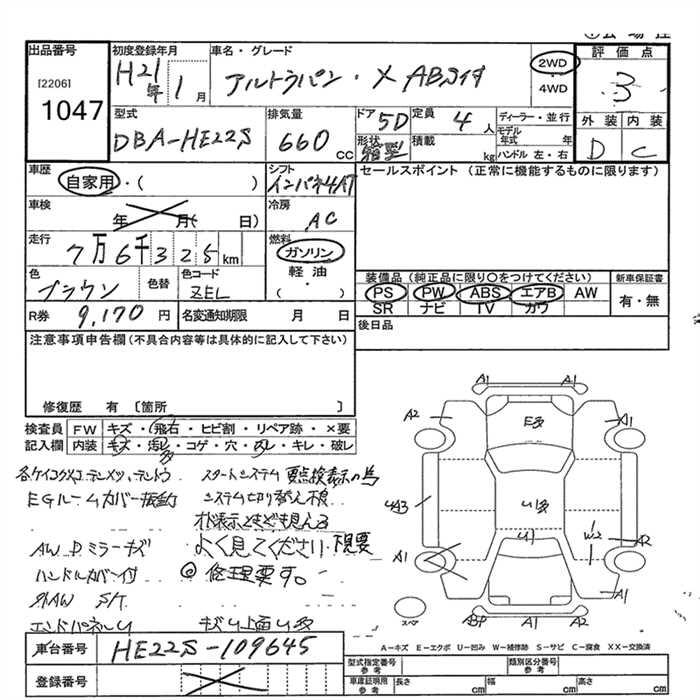 出品番号
[2206]
1047
初度登録年月
H21年 1月
車名・グレード
アルトラパン・X ABS付
2WD
・
4WD
評価点
3
外装 内装
D C
型式
DBA-HE22S
排気量
660 CC
ドア 5D
形状 箱型
定員 4人
積載 kg
ディーラー・並行
モデル年式 年
ハンドル 左・右
車歴
自家用・( )
シフト
インパネ4AT
セールスポイント (正常に機能するものに限ります)
車検
年 月( 日)
冷房
AC
走行
7万6千325km
燃料
ガソリン
軽油
・( )
色
ブラウン
色替
色コード
ZEL
装備品(純正品に限り○をつけてください)
PS PW ABS エアB AW
SR ナビ TV カワ
新車保証書
有・無
R券 9,170円
名変通知期限 月 日
後日品
注意事項申告欄(不具合内容等は具体的に記入して下さい)
修復歴 有 〔箇所 〕
検査員記入欄
FW キズ・飛石・ヒビ割・リペア跡・×要
内装 キズ・汚レ・コゲ・穴・スレ・キレ・破レ
スタートシステム 要点検表示の為
EGルームカバー
システム切り替え不良
表示ときどき見える
AW Dミラーキズ
よく見てください
ハンドルカバー付
◎修理要す。
社外AW S/T
エンドパネルU
A1 A1
A2 A1
E3
A1 W2
A1
A1 A2
スペア
車台番号 HE22S-109645
登録番号
A-キズ E-エクボ U-凹み W-補修跡 S-サビ C-腐食 XX-交換済
型式指定番号 参考
類別区分番号 参考
車庫証明用 参考
長さ cm 幅 cm 高さ cm